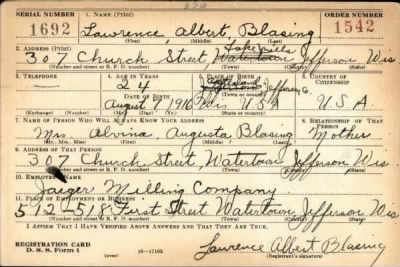 326
SERIAL NUMBER 1. NAME (Print) ORDER NUMBER
1692 Lawrence Albert Blasing 1542
(First) (Middle) (Last)
2. ADDRESS (Print) Lake Mills
307 Church Street, Watertown Jefferson Wis
(Number and street or R. F. D. number) (Town) (County) (State)
3. TELEPHONE 4. AGE IN YEARS 5. PLACE OF BIRTH 6. COUNTRY OF CITIZENSHIP
24 Jefferson Co.
DATE OF BIRTH
August 1, 1916 Wis U.S.A U.S.A.
(Exchange) (Number) (Mo.) (Day) (Yr.) (State or country)
7. NAME OF PERSON WHO WILL ALWAYS KNOW YOUR ADDRESS 8. RELATIONSHIP OF THAT PERSON
Mrs Alvina Augusta Blasing Mother
(Mr., Mrs., Miss) (First) (Middle) (Last)
9. ADDRESS OF THAT PERSON
307 Church Street, Watertown Jefferson Wis
(Number and street or R. F. D. number) (Town) (County) (State)
10. EMPLOYER'S NAME
Jaeger Milling Company
11. PLACE OF EMPLOYMENT OR BUSINESS
512-518 First Street Watertown Jefferson Wis
(Number and street or R. F. D. number) (Town) (County) (State)
I AFFIRM THAT I HAVE VERIFIED ABOVE ANSWERS AND THAT THEY ARE TRUE.
REGISTRATION CARD
D. S. S. FORM 1 16—17105 Lawrence Albert Blasing
(Registrant's signature)